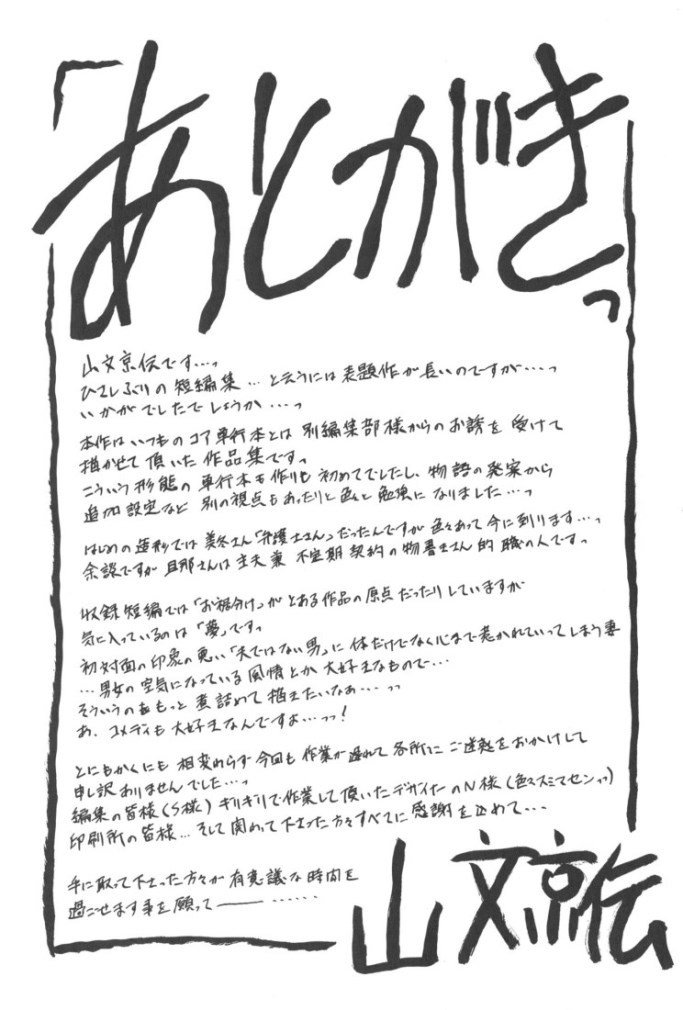 「あとがきっ
山文京伝です…っ
ひさしぶりの短編集…と云うには表題作が長いのですが…っ
いかがでしたでしょうか…っ
本作はいつものコア単行本とは別編集部様からのお誘を受けて
描かせて頂いた作品集ですっ
こういう形態の単行本も作りも初めてでしたし、物語の発案から
追加設定など別の視点もあったりと色々と勉強になりました…っ
はじめの造形では美冬さん「弁護士さん」だったんですが色々あって今に到ります…っ
余談ですが旦那さんは主夫兼不定期契約の物書きさん的職の人ですっ
収録短編では「お裾分け」がとある作品の原点だったりしていますが
気に入っているのは「夢」ですっ
初対面の印象の悪い「夫ではない男」に体だけでなく心まで惹かれていってしまう妻
…男女の空気になっている風情とか大好きなもので…
そういうのをもっと煮詰めて描きたいなぁ…っっ
あ、コメディも大好きなんですよ…っっ！
とにもかくにも相変わらず今回も作業が遅れて各所にご迷惑をおかけして
申し訳ありませんでした…っ
編集の皆様(S様)ギリギリで作業して頂いたデザイナーのN様(色々スミマセンっっ)
印刷所の皆様…そして関わって下さった方々すべてに感謝を込めて…
手に取って下さった方々が有意議な時間を
過ごせます事を願って――……
山文京伝